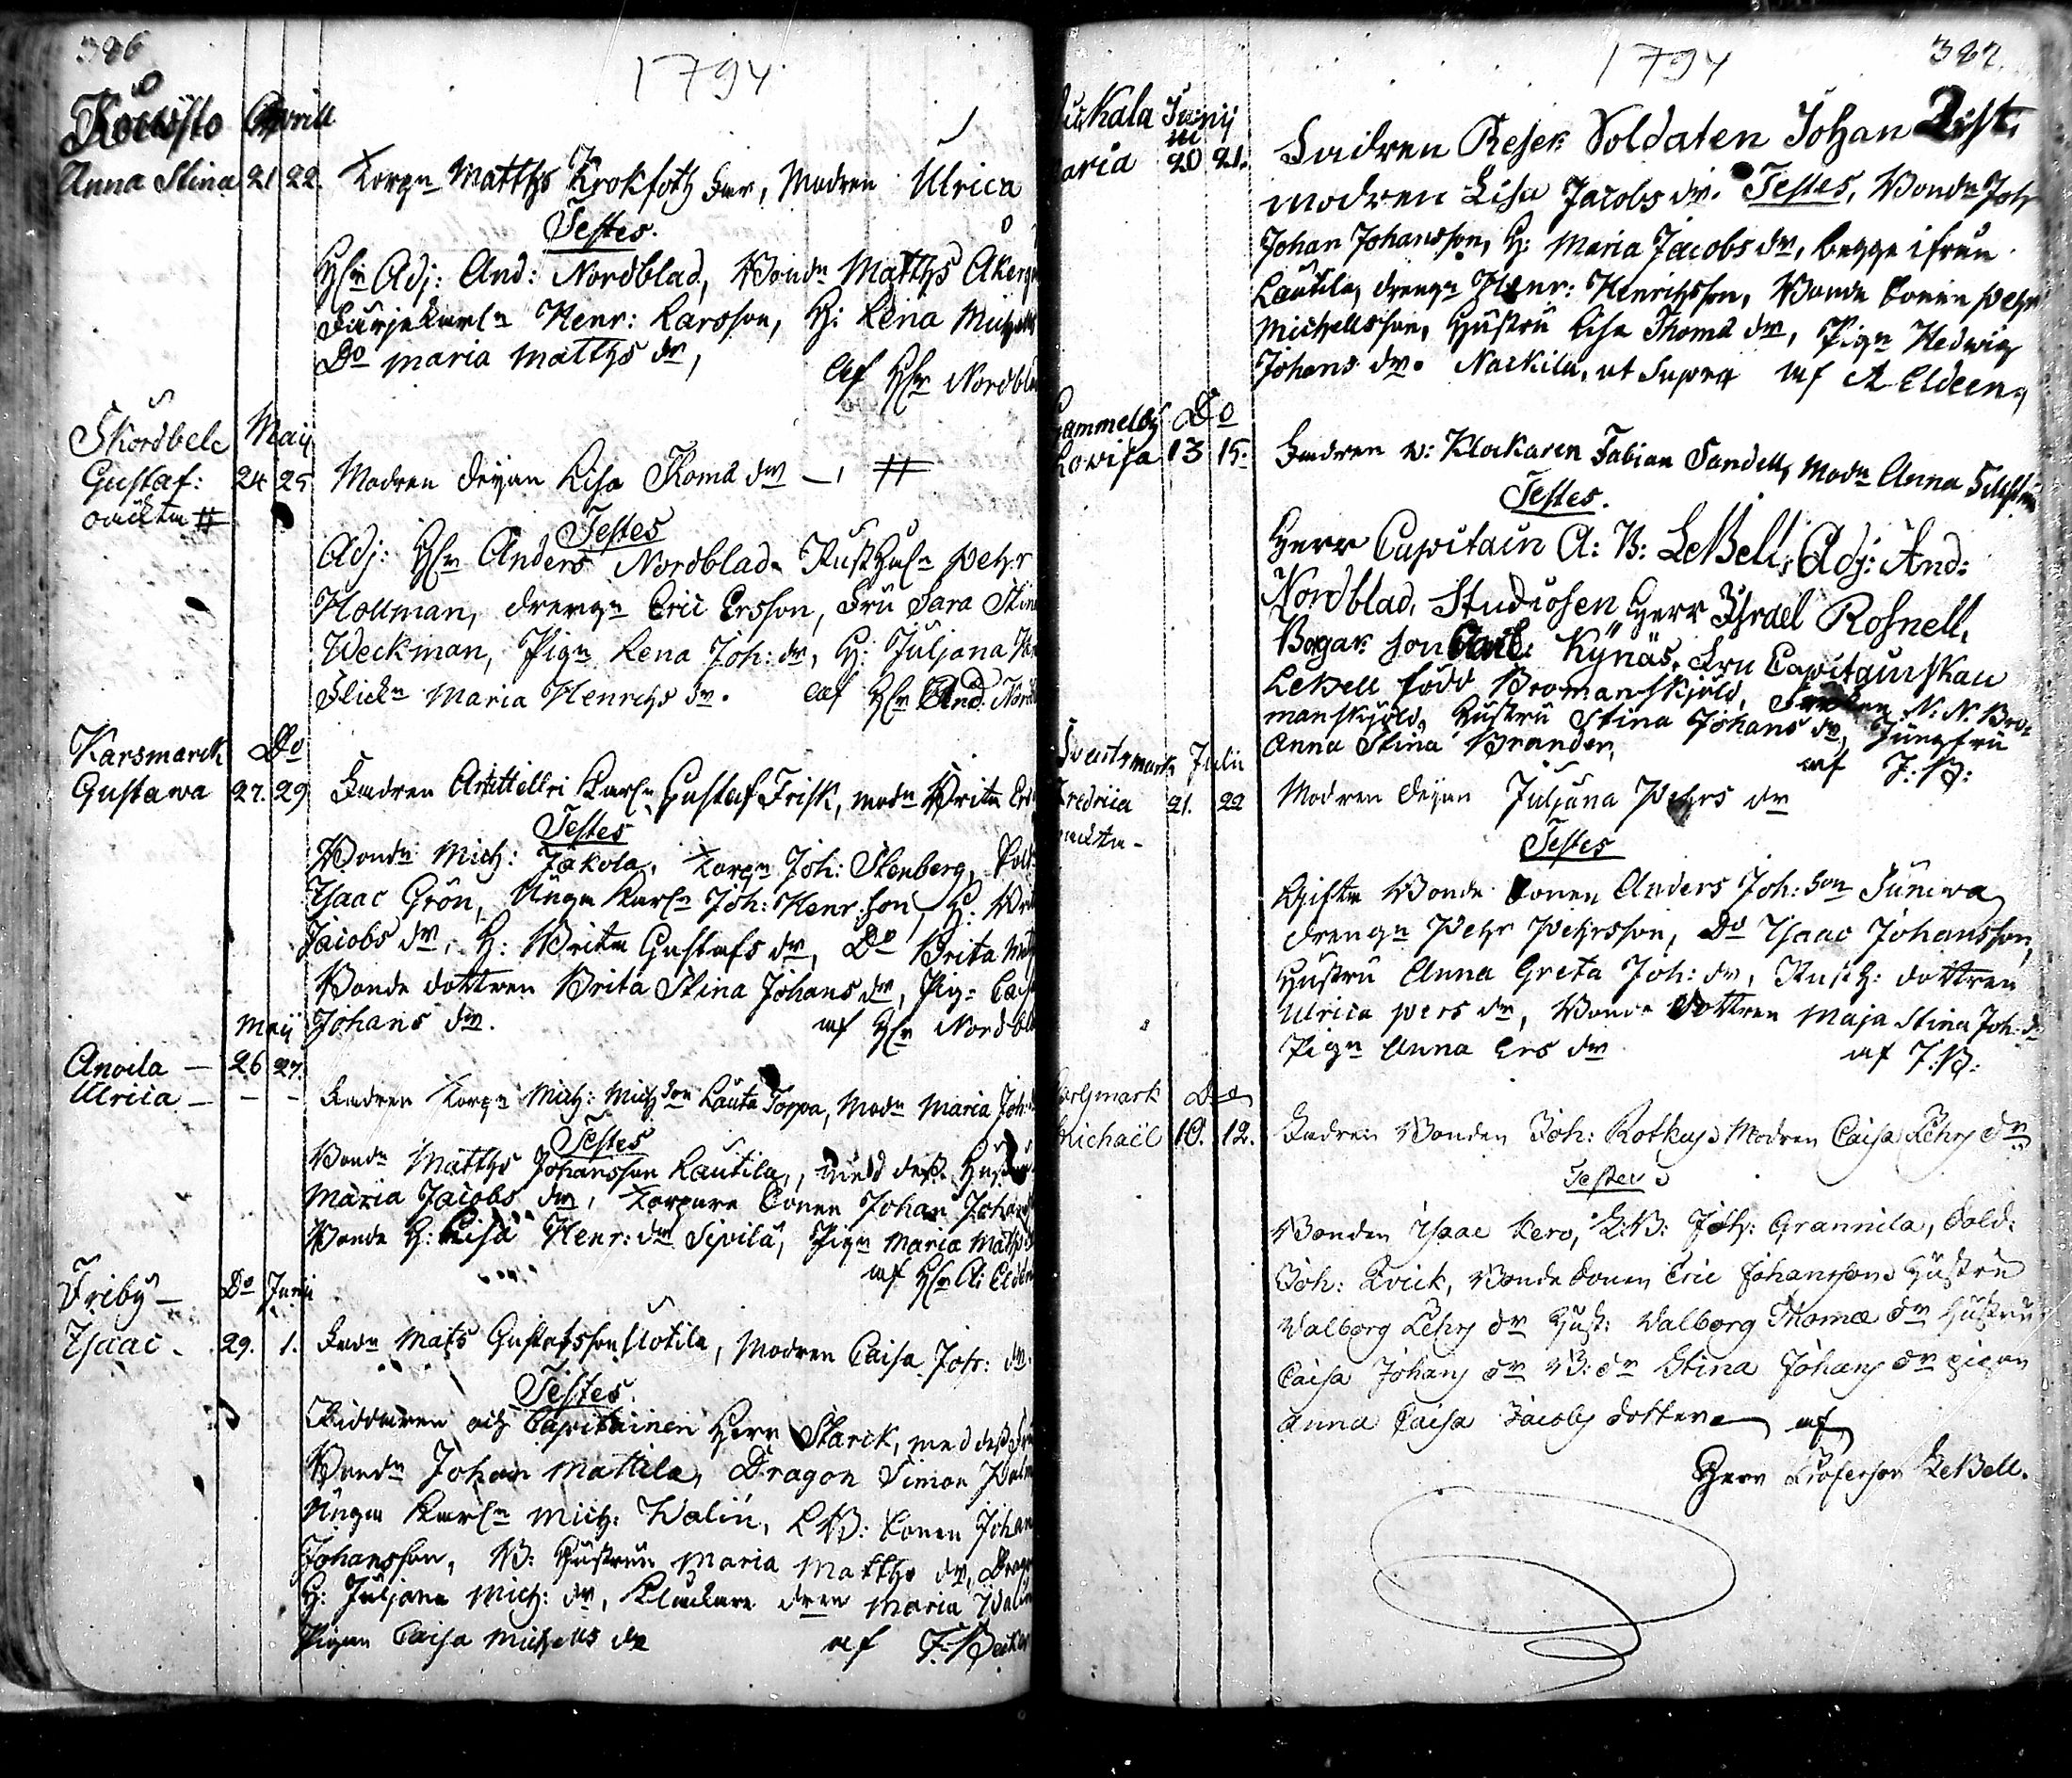 386
1794
Kouisto Aprill
Anna Stina 21 22. Torpn Matths Krokfoth Far, Modren Ulrica
Testes.
Hhr Adj: And: Nordblad, Bondn Matths Åkerp
Färjekarln Henr: Larsson, H: Lena Michells
Do Maria Matths dr, af Hhr Nordbla
Skordbele Maij
Gustaf: 24 25 Modren Deijan Lisa Thoma dr —, #
oäckta #
Testes
Adj: Hhr Anders Nordblad. Rusthåln Pehr
Hollman, drengn Eric Ersson, Fru Sara Stina
Weckman, Pign Lena Joh: dr, H: Juljana
Flickn Maria Henrichs dr. af Hhr And: Nord
Karsmarck Do
Gustawa 27. 29 Fadren Karln Gustaf Frisk, modn Brita
Testes
Bondn Mich: Jakola, Torpn Joh: Stenberg,
Isaac Grön, Unga Karln Joh: Henr:son, H: Brit
Jacobs dr, H: Brita Gustafs dr, Do Brita
Bonde dottren Brita Stina Johans dr, Pig: Caisa
Johans dr. af Hhr Nordbla
Maij
Anoila — 26 27.
Ulrica — — — Fadren Torpn Mich: Mich son Lauta Torpa, Modn Maria Joh:
Testes
Bondn Matths Johansson Lautila, med dess Hustru
Maria Jacobs dr, Torpare Sonen Johan Johans
Bonde H: Lisa Henr: dr Sipilä, Pign Maria Matths
af Hhr A: Eldeen
Friby — Do Junii
Isaac. 29. 1. Fadn Mats Gustafsson Uotila, Modren Caisa Joh: dr.
Testes.
Riddaren och Capitainen Herr Starck, med dess Fru
Bondn Johan Mattila, Dragon Simon
Unga Karln Mich: Walin, L B: Sonen Johan
Johansson, B: Hustrun Maria Matths dr, Drago
H: Juljana Mich: dr, Klockare dren Maria Walin
Pigan Caisa Michells dr af F: Becker
1794
387.
Junij
aria 20 21. Fadren Reser: Soldaten Johan Qvist,
modren Lisa Jacobs dr. Testes, Bondn Joh
Johan Johansson, H: Maria Jacobs dr, begge ifrån
Lautila, drengn Henr: Henrichsson, Bonde Sonen Pehr
Michellsson, Hustru Lisa Thoma dr, Pign Hedwig
Johans dr. Nackila, ut Supra af A Eldeen,
Gammelby Do
Lovisa 13 15. Fadren v: Klockaren Fabian Sandell, Modn Anna
Testes.
Herr Capitain A: B: LeBell, Adj: And:
Nordblad, Studiosen Herr Israel Rosnell,
Borgar son Kynäs, Fru Capitainskan
LeBell född Bromanskjöld, Fröken N: N: Bro-
manskjöld, Hustru Stina Johans dr, Jungfru
Anna Stina Brander, af J: B:
Svartsmark Julii
Fredrica 21. 22 Modren Deijan Juljana Pehrs dr
oäckta -
Testes
Gifta Bonde Sonen Anders Joh: son Juniwa,
drengn Pehr Pehrsson, Do Isaac Johansson,
Hustru Anna Greta Joh: dr, Rusth: dottren
Ulrica Pers dr, Bonde Dottren Maja Stina Joh: dr
Pign Anna Ers dr af J: B:
Karsmark Do
Michaël 10. 12. Fadren Bonden Joh: Rotkus Modren Caisa Pehrs dr
Testes
Bonden Isaac Kero, L: B: Joh: Grannila, Sold:
Joh: Qvick, Bonde Sonen Eric Johansson, Hustru
Walborg Pehrs dr Hust: Walborg Thomæ dr Hustru
Caisa Johans dr B: dr Stina Johans dr pigan
Anna Caisa Jacobs dotter af
Herr Professor LeBell.